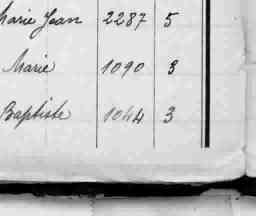 Marie Jean 2287 5
Marie 1090 3
Baptiste 1044 3